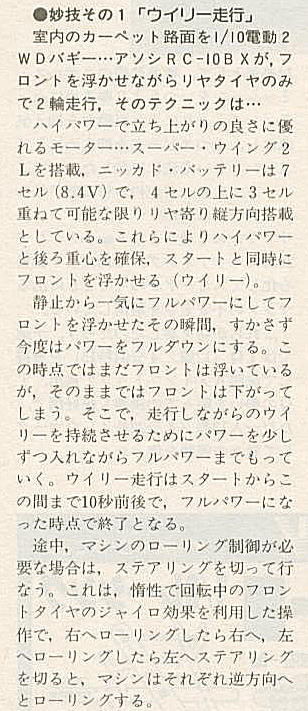 ●妙技その1「ウイリー走行」
室内のカーペット路面を1/10電動2
WDバギー…アソシRC-10BXが,フ
ロントを浮かせながらリヤタイヤのみ
で2輪走行,そのテクニックは…
ハイパワーで立ち上がりの良さに優
れるモーター…スーパー・ウイング2
Lを搭載,ニッカド・バッテリーは7
セル(8.4V)で,4セルの上に3セル
重ねて可能な限りリヤ寄り縦方向搭載
としている。これらによりハイパワー
と後ろ重心を確保,スタートと同時に
フロントを浮かせる(ウイリー)。
静止から一気にフルパワーにしてフ
ロントを浮かせたその瞬間,すかさず
今度はパワーをフルダウンにする。こ
の時点ではまだフロントは浮いている
が,そのままではフロントは下がって
しまう。そこで,走行しながらのウイ
リーを持続させるためにパワーを少し
ずつ入れながらフルパワーまでもって
いく。ウイリー走行はスタートからこ
の間まで10秒前後で,フルパワーにな
った時点で終了となる。
途中,マシンのローリング制御が必
要な場合は,ステアリングを切って行
なう。これは,惰性で回転中のフロン
トタイヤのジャイロ効果を利用した操
作で,右へローリングしたら右へ,左
へローリングしたら左へステアリング
を切ると,マシンはそれぞれ逆方向へ
とローリングする。